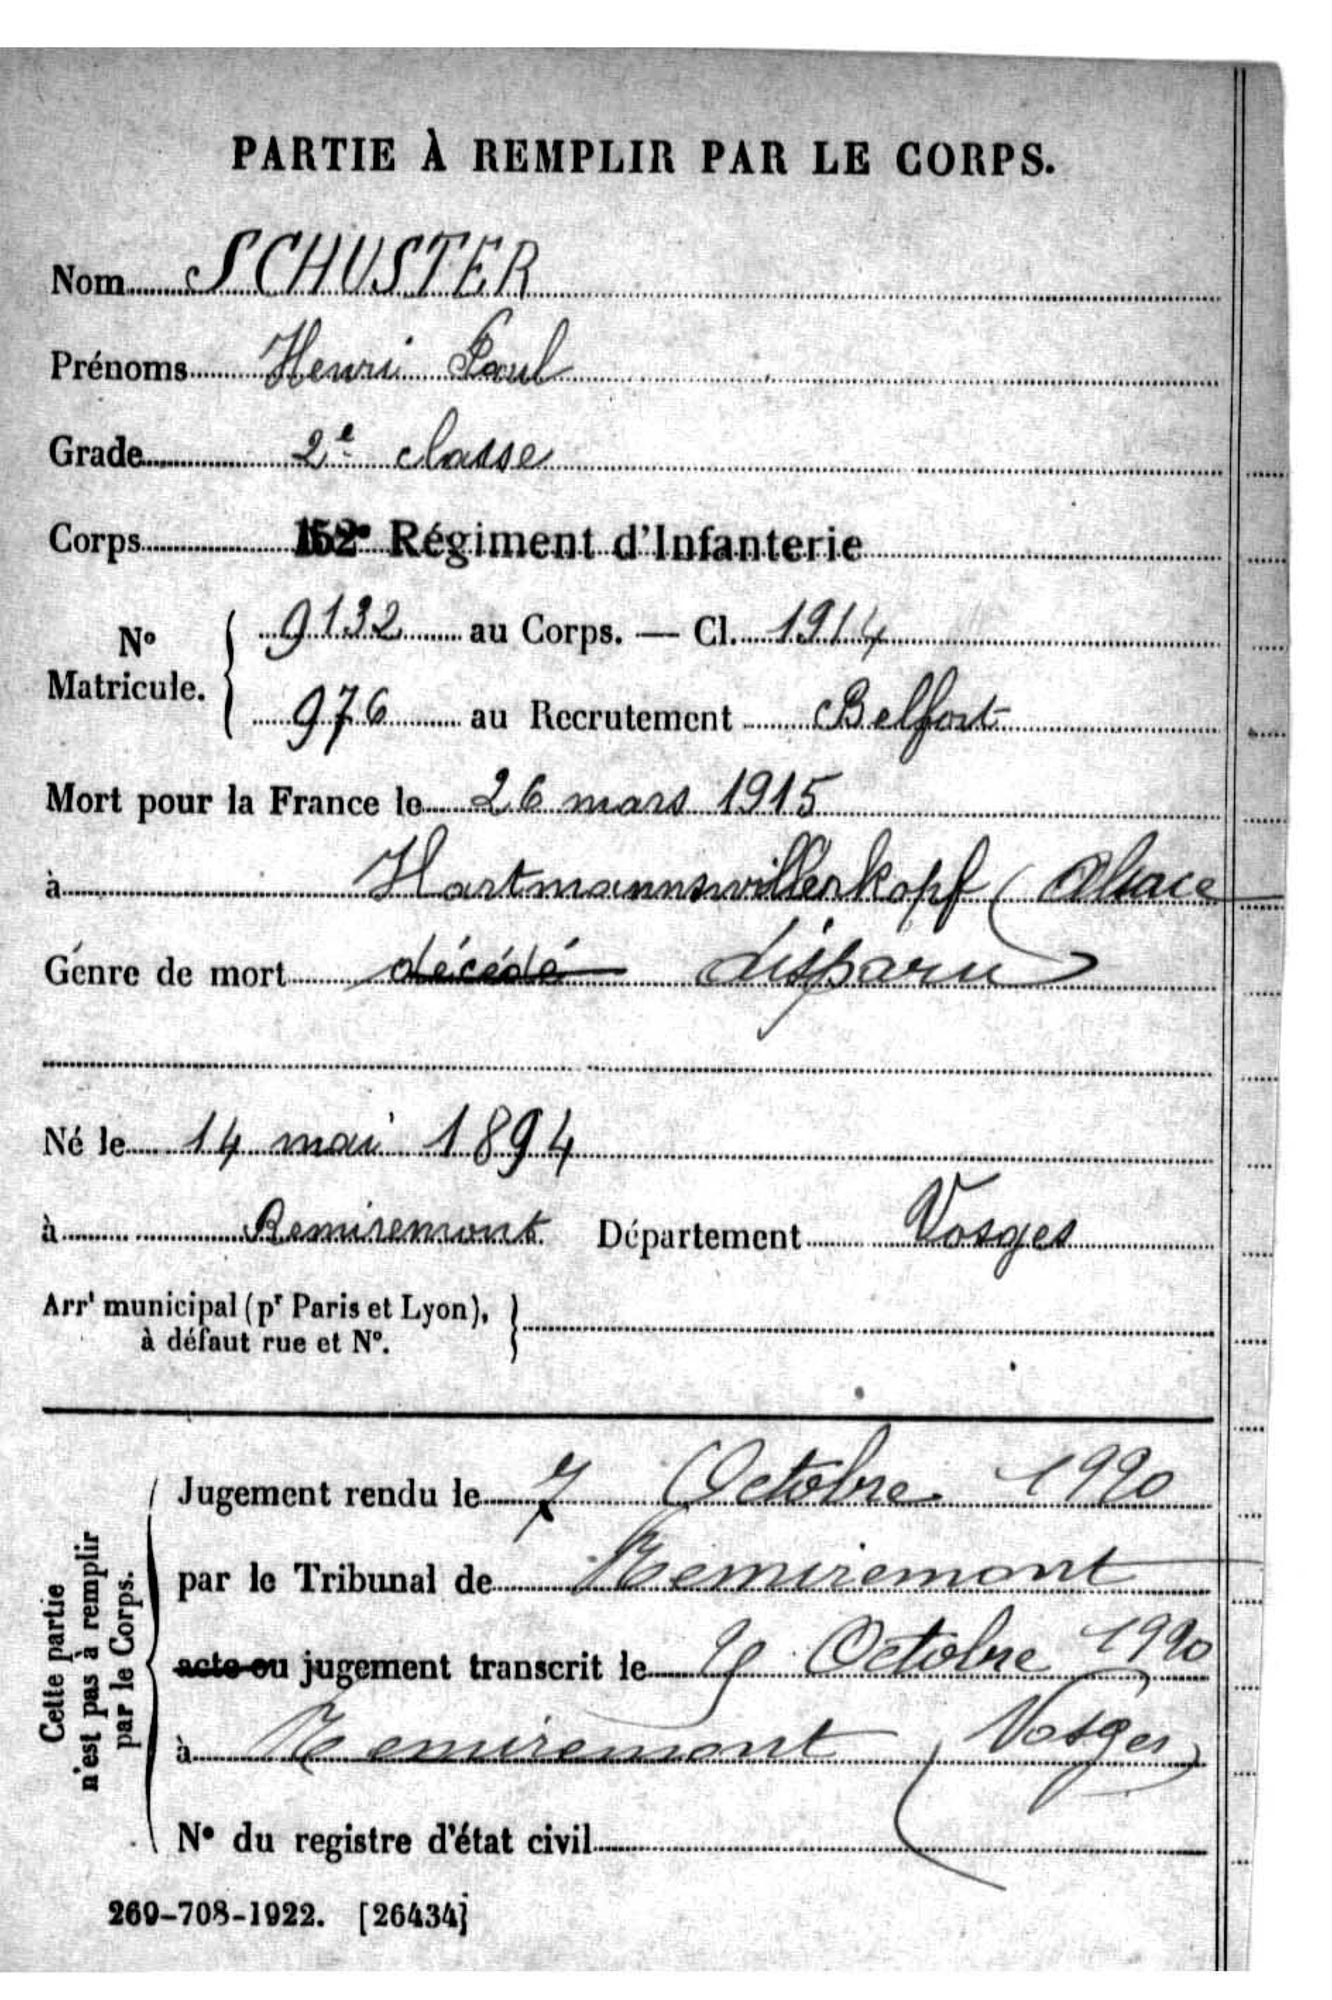 PARTIE À REMPLIR PAR LE CORPS.
Nom SCHUSTER
Prénoms Henri Paul
Grade 2e classe
Corps 152e Régiment d'Infanterie
N° Matricule. 9132 au Corps. — Cl. 1914
976 au Recrutement Belfort
Mort pour la France le 26 mars 1915
à Hartmannswillerkopf (Alsace
Genre de mort décédé disparu
Né le 14 mai 1894
à Remiremont Département Vosges
Arrt municipal (pr Paris et Lyon),
à défaut rue et N°.
Cette partie
n'est pas à remplir
par le Corps.
Jugement rendu le 7 Octobre 1920
par le Tribunal de Remiremont
acte ou jugement transcrit le Octobre 1920
à Remiremont (Vosges)
N° du registre d'état civil
269-708-1922. [26434]